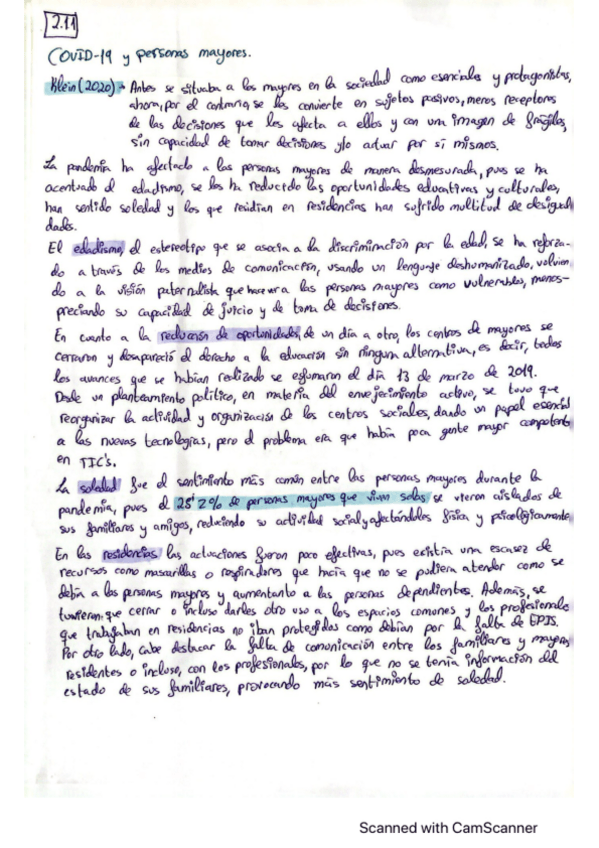 2.11
COVID-19 y personas mayores.
Klein (2020) → Antes se situaba a los mayores en la sociedad como esenciales y protagonistas,
ahora, por el contrario, se les convierte en sujetos pasivos, meros receptores
de las decisiones que les afecta a ellos y con una imagen de frágiles,
sin capacidad de tomar decisiones y/o actuar por sí mismos.
La pandemia ha afectado a las personas mayores de manera desmesurada, pues se ha
acentuado el edadismo, se les ha reducido las oportunidades educativas y culturales,
han sentido soledad y los que residían en residencias han sufrido multitud de desigual
dades.
El edadismo, el estereotipo que se asocia a la discriminación por la edad, se ha reforza-
do a través de los medios de comunicación, usando un lenguaje deshumanizado, volvien
do a la visión paternalista que hace ver a las personas mayores como vulnerables, menos-
preciando su capacidad de juicio y de toma de decisiones.
En cuanto a la reducción de oportunidades, de un día a otro, los centros de mayores se
cerraron y desapareció el derecho a la educación sin ninguna alternativa, es decir, todos
los avances que se habían realizado se esfumaron el día 13 de marzo de 2019.
Desde un planteamiento político, en materia del envejecimiento activo, se tuvo que
reorganizar la actividad y organización de los centros sociales, dando un papel esencial
a las nuevas tecnologías, pero el problema era que había poca gente mayor competente
en TIC's.
La soledad fue el sentimiento más común entre las personas mayores durante la
pandemia, pues el 25'2% de personas mayores que vivían solas se vieron aislados de
sus familiares y amigos, reduciendo su actividad social y afectándoles física y psicológicamente.
En las residencias las actuaciones fueron poco efectivas, pues existía una escasez de
recursos como mascarillas o respiradores que hacía que no se pudiera atender como se
debía a las personas mayores y aumentanto a las personas dependientes. Además, se
tuvieron que cerrar o incluso darles otro uso a los espacios comunes y los profesionales
que trabajaban en residencias no iban protegidos como debían por la falta de EPIS.
Por otro lado, cabe destacar la falta de comunicación entre los familiares y mayores
residentes o incluso, con los profesionales, por lo que no se tenía información del
estado de sus familiares, provocando más sentimiento de soledad.
Scanned with CamScanner